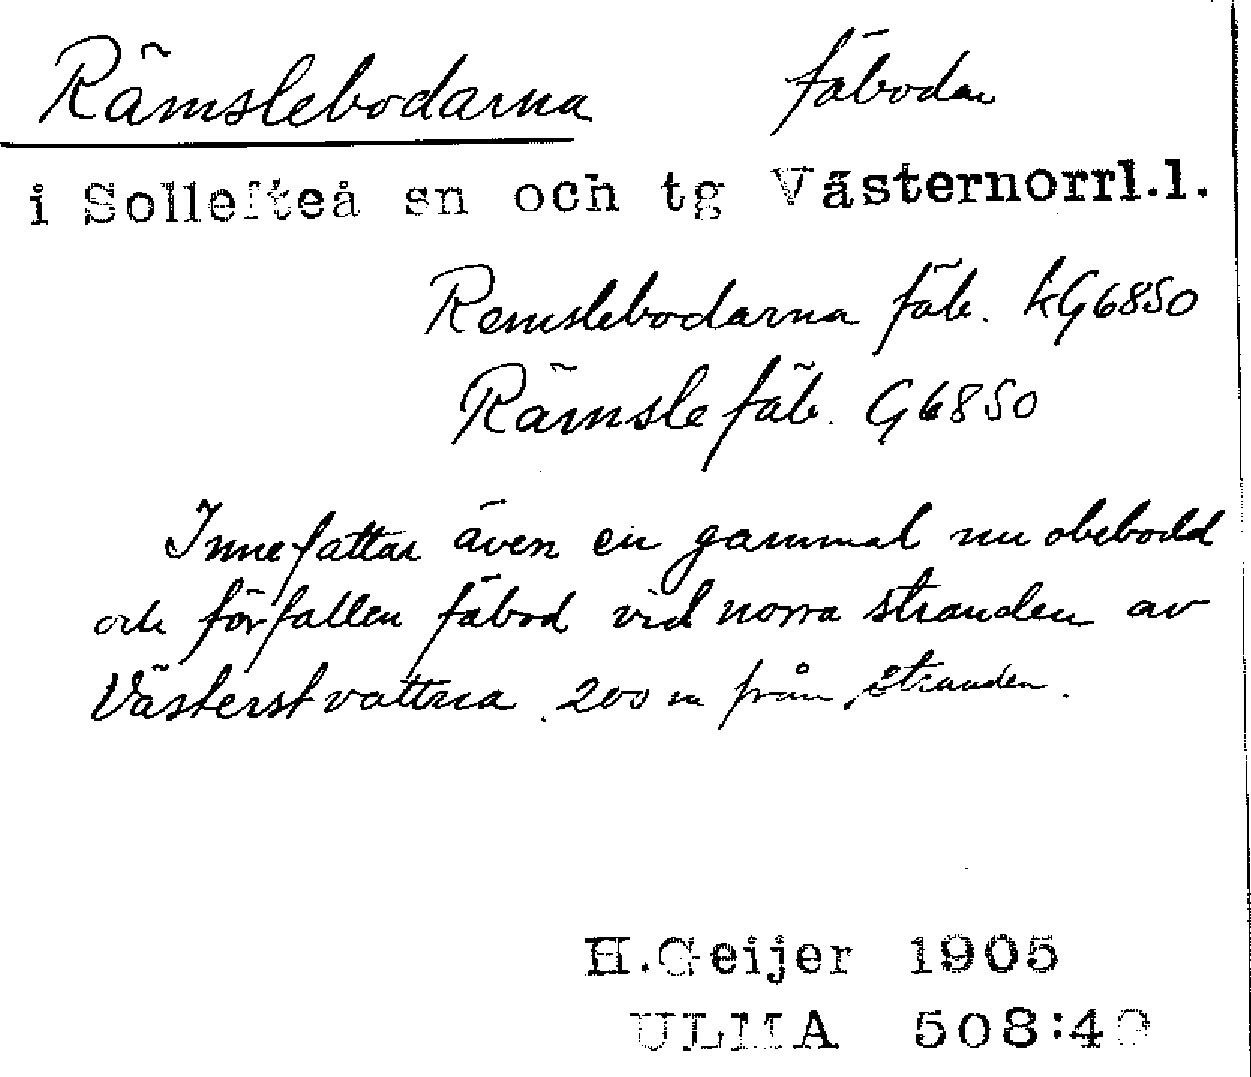 Rämslebodarna fäbodar
i Sollefteå sn och tg Västernorrl.l.
Remslebodarna fäb. kG6850
Rämsle fäb. G6850
Innefattar även en gammal nu obebodd
och förfallen fäbod vid norra stranden av
Västerstvattna 200 m från stranden.
H.Geijer 1905
ULMA 508:49